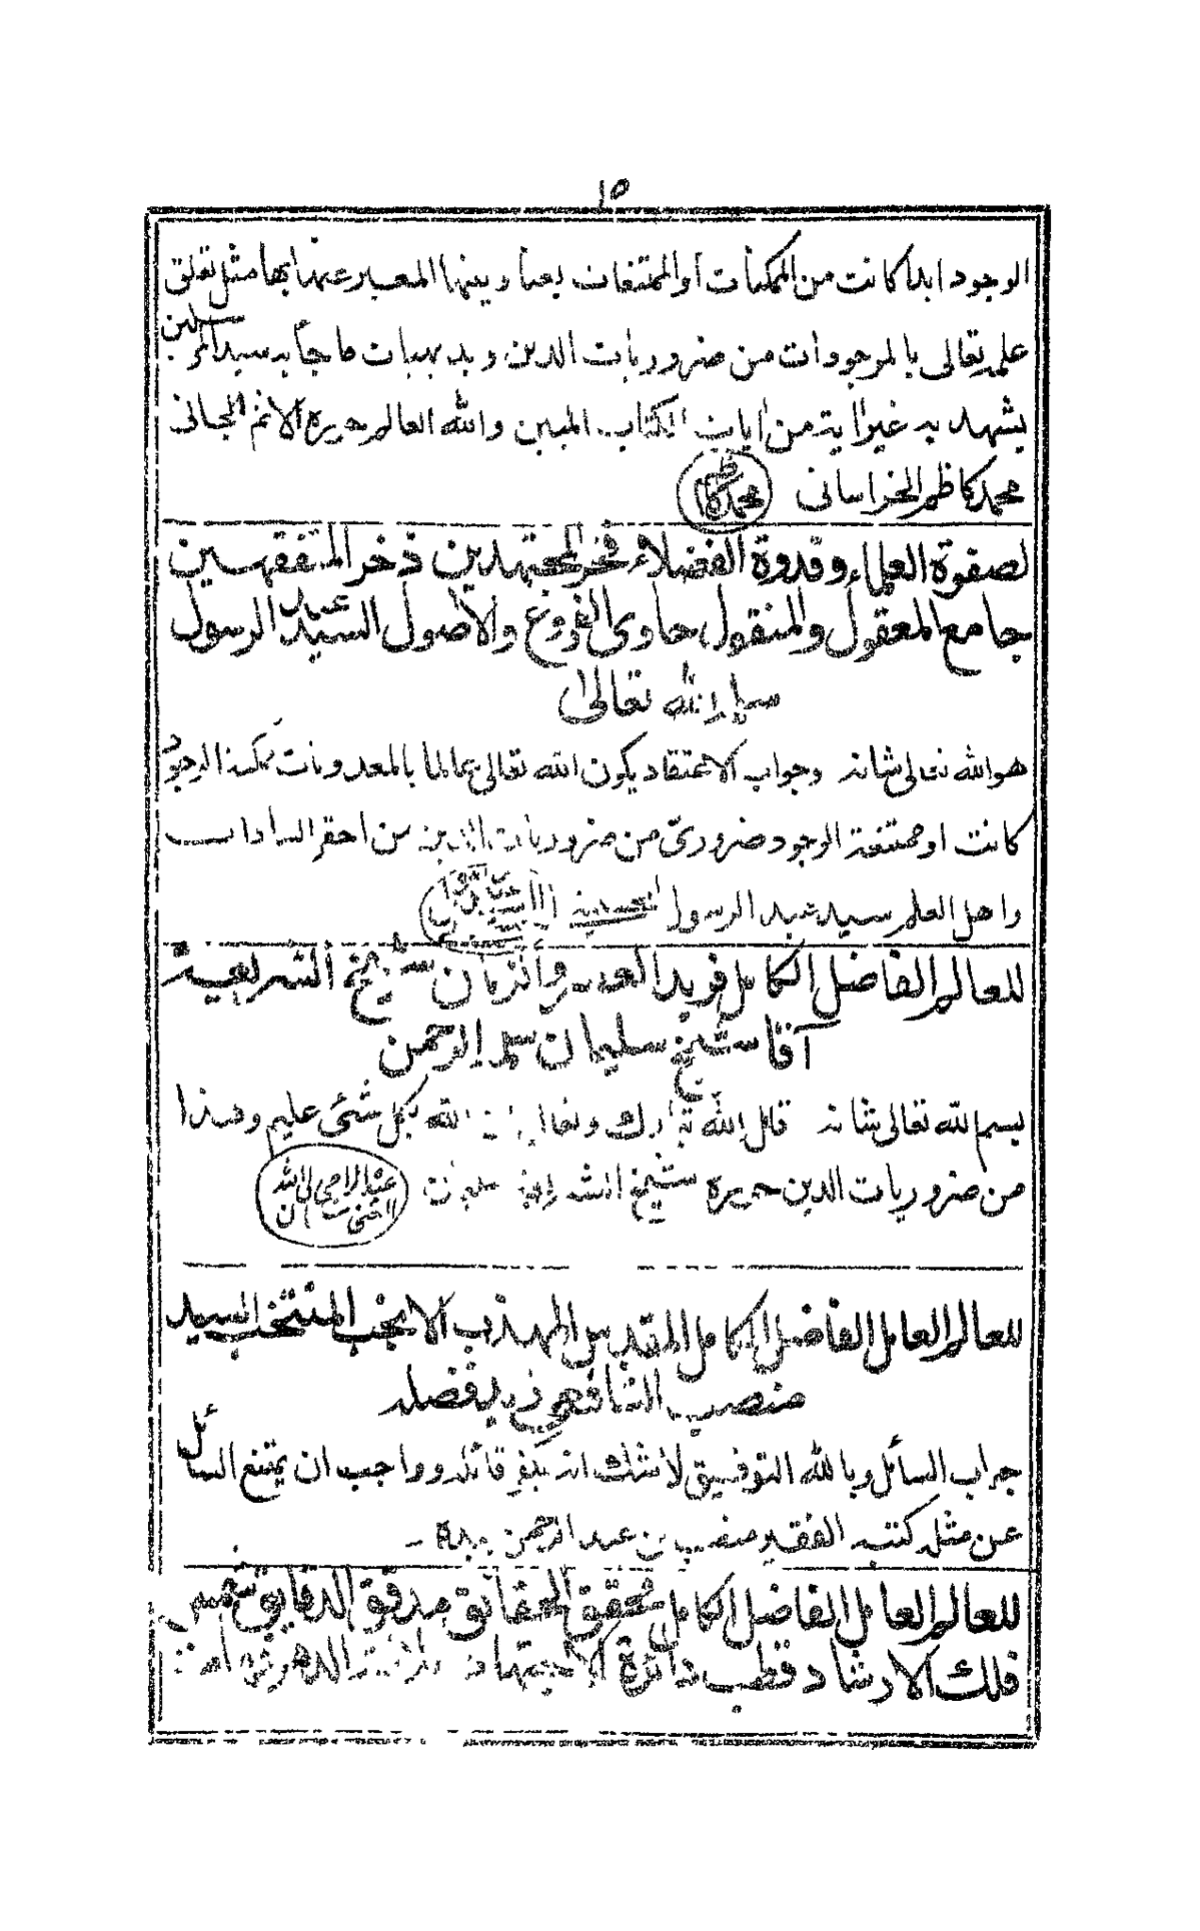 ١٥
الوجود ابدا كانت من الممكنات او الممتنعات بعنا وينها المعبر عنها بها مثل تعلق
علمه تعالى بالموجودات من ضروريات الدين وبديهيات ما جاء به سيد المرسلين
يشهد به غير اية من ايات الكتاب المبين والله العالم حرره الاثم الجانى
محمد كاظم الخراسانى محمد كاظم
لصفوة العلماء وقدوة الفضلاء فخر المجتهدين ذخر المتفقهين
جامع المعقول والمنقول حاوى الفروع والاصول السيد عبد الرسول
سلمه الله تعالى
هو الله تعالى شانه وجواب الاعتقاد يكون الله تعالى عالما بالمعدومات ممكنة الوجود
كانت او ممتنعة الوجود ضرورىّ من ضروريات الدين من احقر السادات
واهل العلم سيد عبد الرسول الحسينى
للعالم الفاضل الكامل فريد العصر والزمان شيخ الشريعة
آقا شيخ سليمان سلمه الرحمن
بسم الله تعالى شانه قال الله تبارك وتعالى الله بكل شئ عليم وهذا
من ضروريات الدين حرره شيخ الشريعة سليمان عبده الراجى الى الله الغنى سليمان
للعالم العامل الفاضل الكامل المقدس المهذب الانجب المنتخب السيد
منصب الشافعى زيد فضله
جواب السائل وبالله التوفيق لا شك انه يكفر قائله وواجب ان يمتنع السائل
عن مثله كتبه الفقير منصب بن عبد الرحمن بيده
للعالم العامل الفاضل الكامل محقق الحقائق مدقق الدقايق شمس
فلك الارشاد قطب دائرة الاجتهاد الدهر